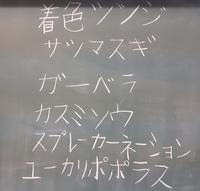 着色ツツジ
サツマスギ
ガーベラ
カスミソウ
スプレーカーネーション
ユーカリポポラス